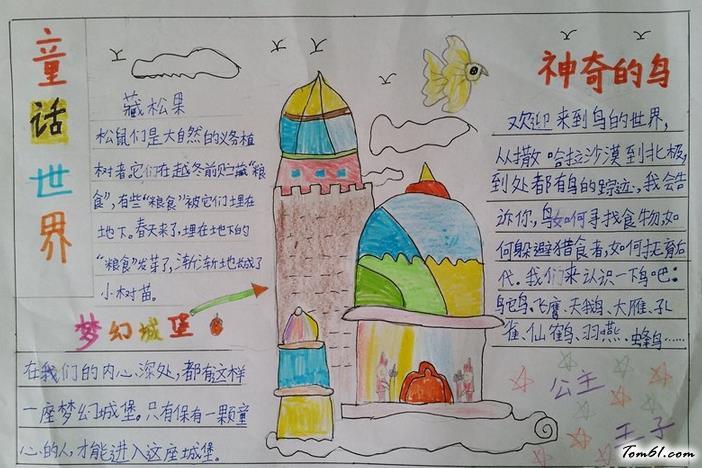 童
话
世
界
藏松果
松鼠们是大自然的义务植
树者,它们在越冬前贮藏“粮
食”,有些“粮食”被它们埋在
地下。春天来了,埋在地下的
“粮食”发芽了,渐渐地长成了
小树苗。
梦幻城堡
在我们的内心深处,都有这样
一座梦幻城堡。只有保有一颗童
心的人,才能进入这座城堡。
神奇的鸟
欢迎来到鸟的世界,
从撒哈拉沙漠到北极,
到处都有鸟的踪迹,我会告
诉你,鸟如何寻找食物,如
何躲避猎食者,如何抚育后
代。我们来认识一下鸟吧:
鸵鸟、飞鹰、天鹅、大雁、孔
雀、仙鹤、羽燕、蜂鸟……
公主
王子
Tom61.com